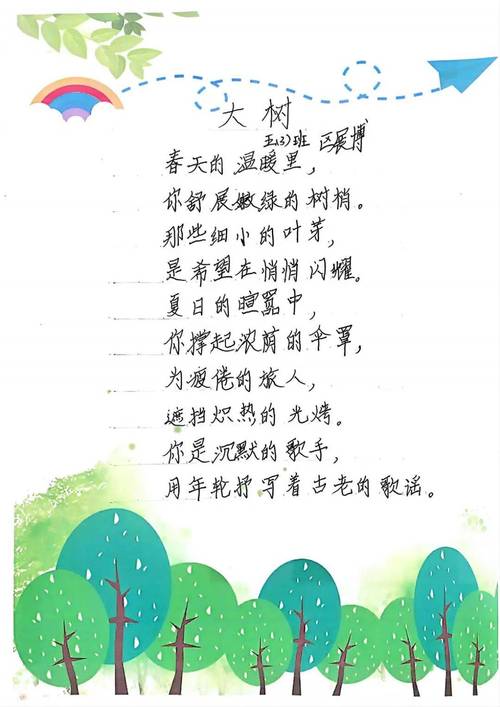 大树
五(3)班 区展博
春天的温暖里，
你舒展嫩绿的树梢。
那些细小的叶芽，
是希望在悄悄闪耀。
夏日的喧嚣中，
你撑起浓荫的伞罩，
为疲倦的旅人，
遮挡炽热的光烤。
你是沉默的歌手，
用年轮抒写着古老的歌谣。